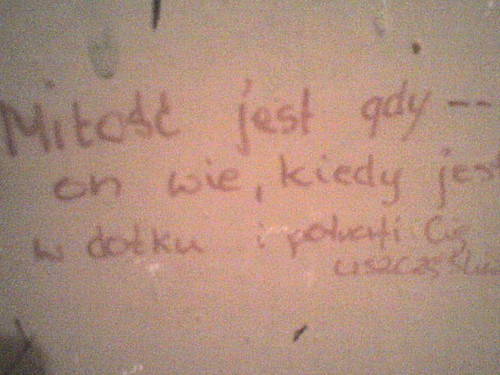 Miłość jest gdy --
on wie, kiedy jest
w dołku i potrafi Cię
uszczęśli